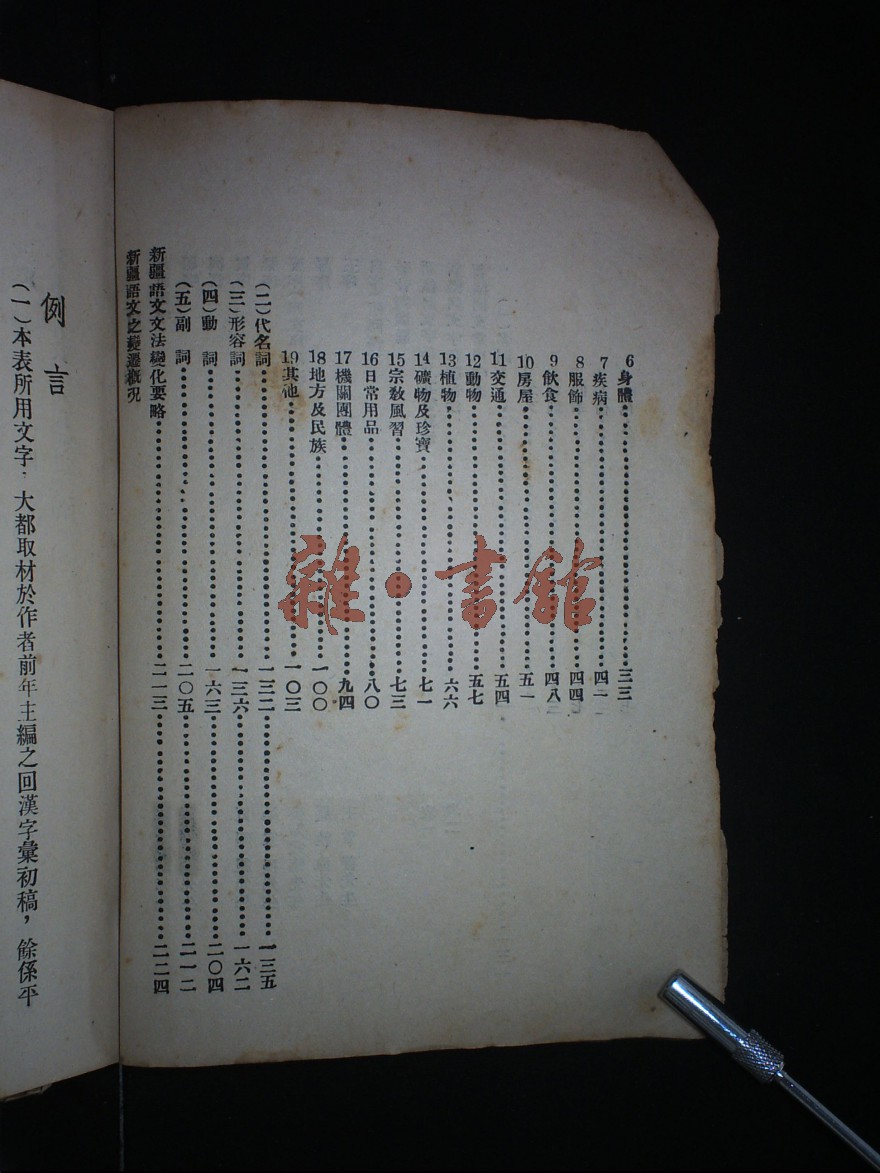 6身體……三三
7疾病……四二
8服飾……四四
9飲食……四八
10房屋……五一
11交通……五四
12動物……五七
13植物……六六
14礦物及珍寶……七一
15宗教風習……七三
16日常用品……八〇
17機關團體……九四
18地方及民族……一〇〇
19其他……一〇三
(二)代名詞……一三二……一三五
(三)形容詞……一三六……一六二
(四)動 詞……一六三……二〇四
(五)副 詞……二〇五……二一二
新疆語文文法變化要略……二一三……二二四
新疆語文之變遷概況
例 言
(一)本表所用文字,大都取材於作者前年主編之回漢字彙初稿,餘係平
雜·書館